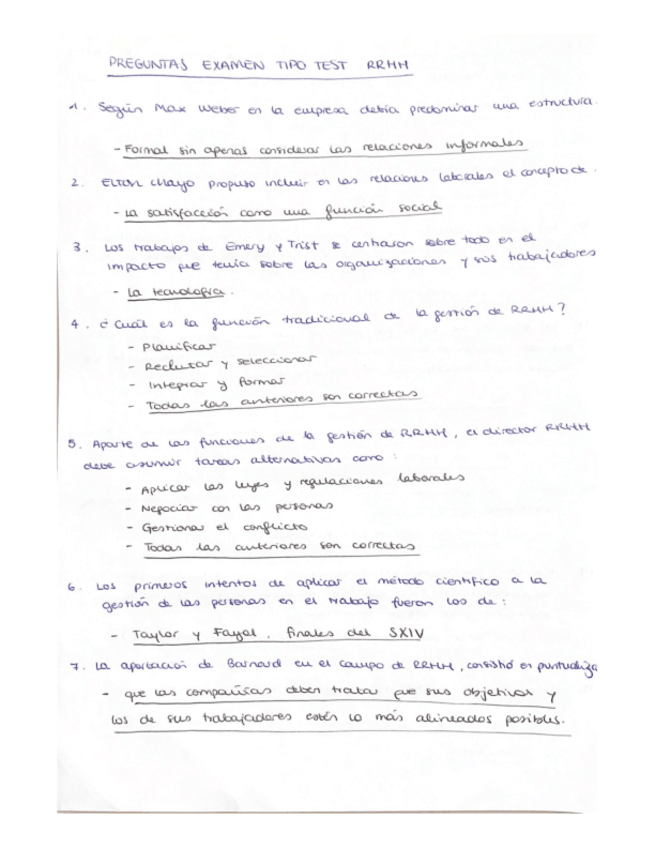 PREGUNTAS EXAMEN TIPO TEST RRHH
1. Según Max Weber en la empresa debría predominar una estructura.
- Formal sin apenas considerar las relaciones informales
2. Elton Mayo propuso incluir en las relaciones laborales el concepto de.
- La satisfacción como una función social
3. Los trabajos de Emery y Trist se centraron sobre todo en el
impacto que tenía sobre las organizaciones y sus trabajadores
- La tecnología.
4. ¿Cuál es la función tradicional de la gestión de RRHH?
- Planificar
- Reclutar y seleccionar
- Integrar y formar
- Todas las anteriores son correctas
5. Aparte de las funciones de la gestión de RRHH, el director RRHH
debe asumir tareas alternativas como:
- Aplicar las leyes y regulaciones laborales
- Negociar con las personas
- Gestionar el conflicto
- Todas las anteriores son correctas
6. Los primeros intentos de aplicar el método científico a la
gestión de las personas en el trabajo fueron los de:
- Taylor y Fayol, finales del SXIV
7. La aportació de Barnard en el campo de RRHH, consistió en puntualiza
- que las compañías deben tratar que sus objetivos y
los de sus trabajadores estén lo más alineados posibles.